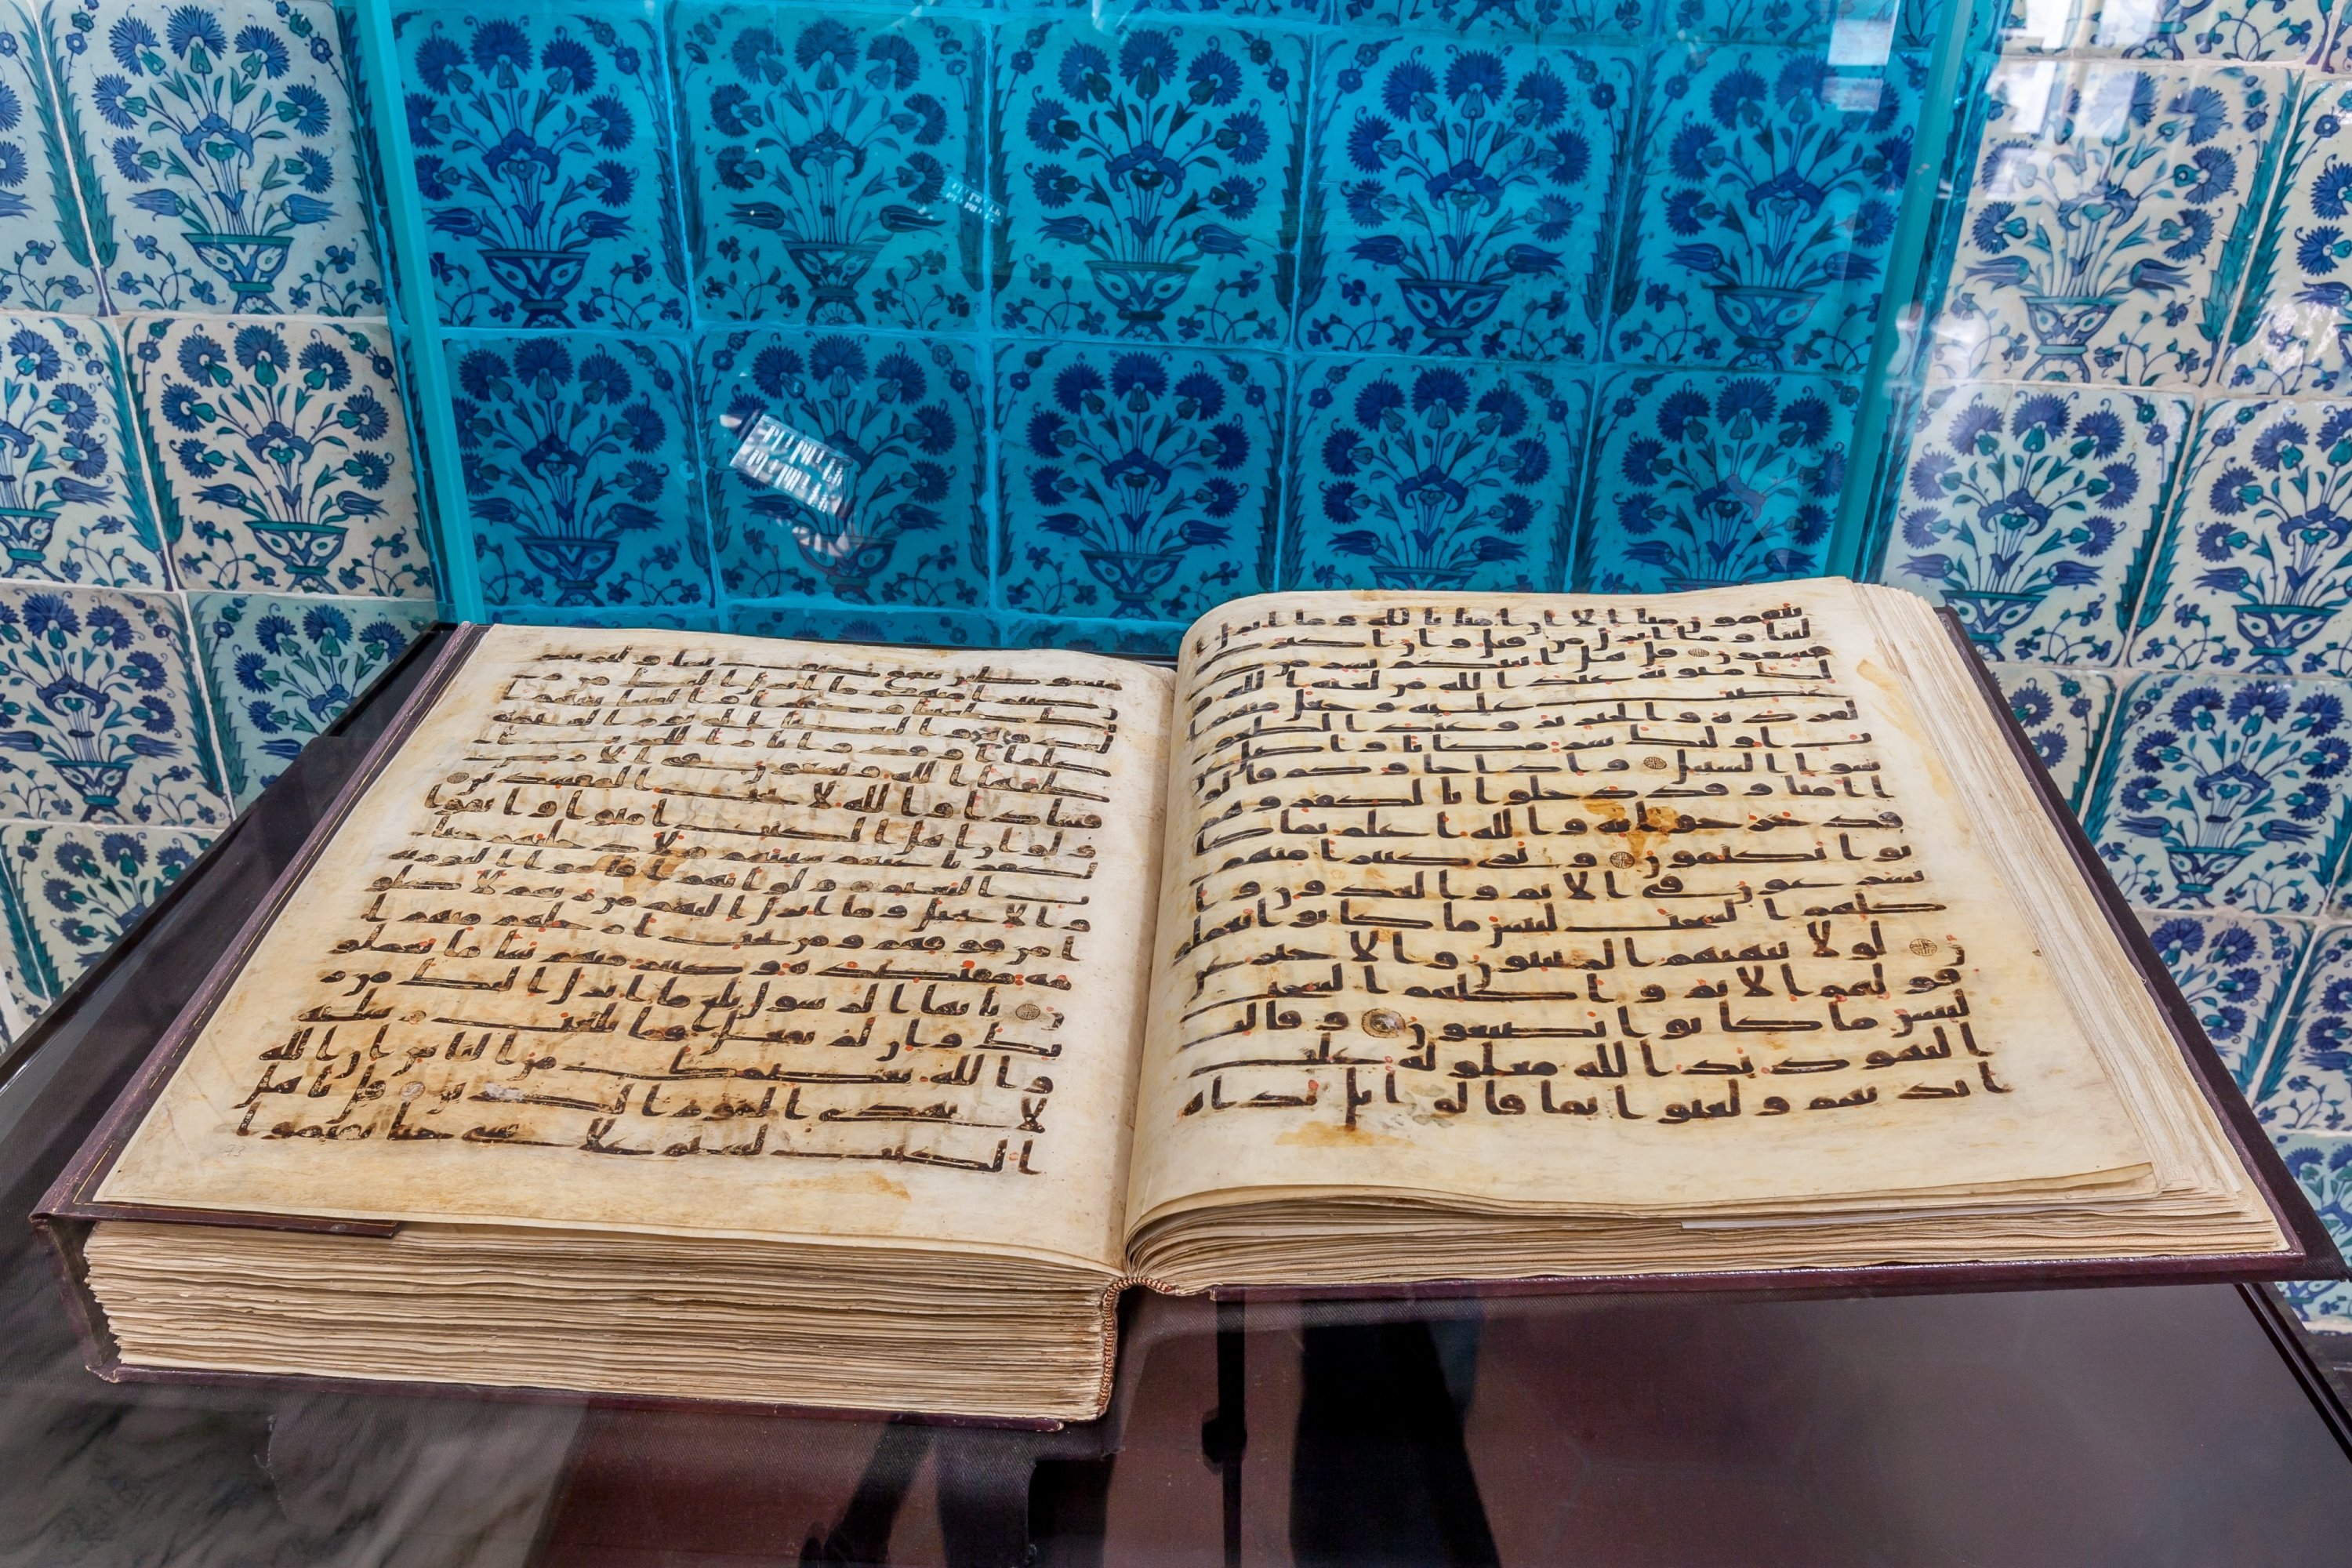 تنقمون منا الا ان امنا بالله وما انزل ا
لينا وما انزل من قبل وان اكثركم
فسقون قل هل انبئكم بشر من ذ
لك مثوبة عند الله من لعنه الله و
غضب عليه وجعل منهم ا
لقردة والخنزير وعبد الطغو
ت اولئك شر مكانا واضل عن
سوا السبيل واذا جاوكم قالو
ا امنا وقد دخلوا بالكفر وهم
قد خرجوا به والله اعلم بما كا
نوا يكتمون وترى كثيرا منهم
يسرعون في الاثم والعدون وا
كلهم السحت لبئس ما كانوا يعملو
ن لولا ينهيهم الربنيون والاحبار عن
قولهم الاثم واكلهم السحت
لبئس ما كانوا يصنعون وقالت
اليهود يد الله مغلولة غلت
ايديهم ولعنوا بما قالوا بل يداه
مبسوطتن ينفق كيف يشا وليزيد
ن كثيرا منهم ما انزل اليك من ر
بك طغينا وكفرا والقينا بينهم ا
لعدوة والبغضا الى يوم القيمة
كلما اوقدوا نارا للحرب ا
طفاها الله ويسعون في الارض
فسادا والله لا يحب المفسدين
ولو ان اهل الكتب امنوا واتقوا
لكفرنا عنهم سيتهم ولادخلنهم جنا
ت النعيم ولو انهم اقاموا التورية
والانجيل وما انزل اليهم من ربهم لاكلو
ا من فوقهم ومن تحت ارجلهم منهم ا
مة مقتصدة وكثير منهم سا ما يعملو
ن يايها الرسول بلغ ما انزل اليك من ر
بك وان لم تفعل فما بلغت رسلته
والله يعصمك من الناس ان الله
لا يهدي القوم الكفرين قل ياهل
الكتب لستم على شي حتى تقيموا ا